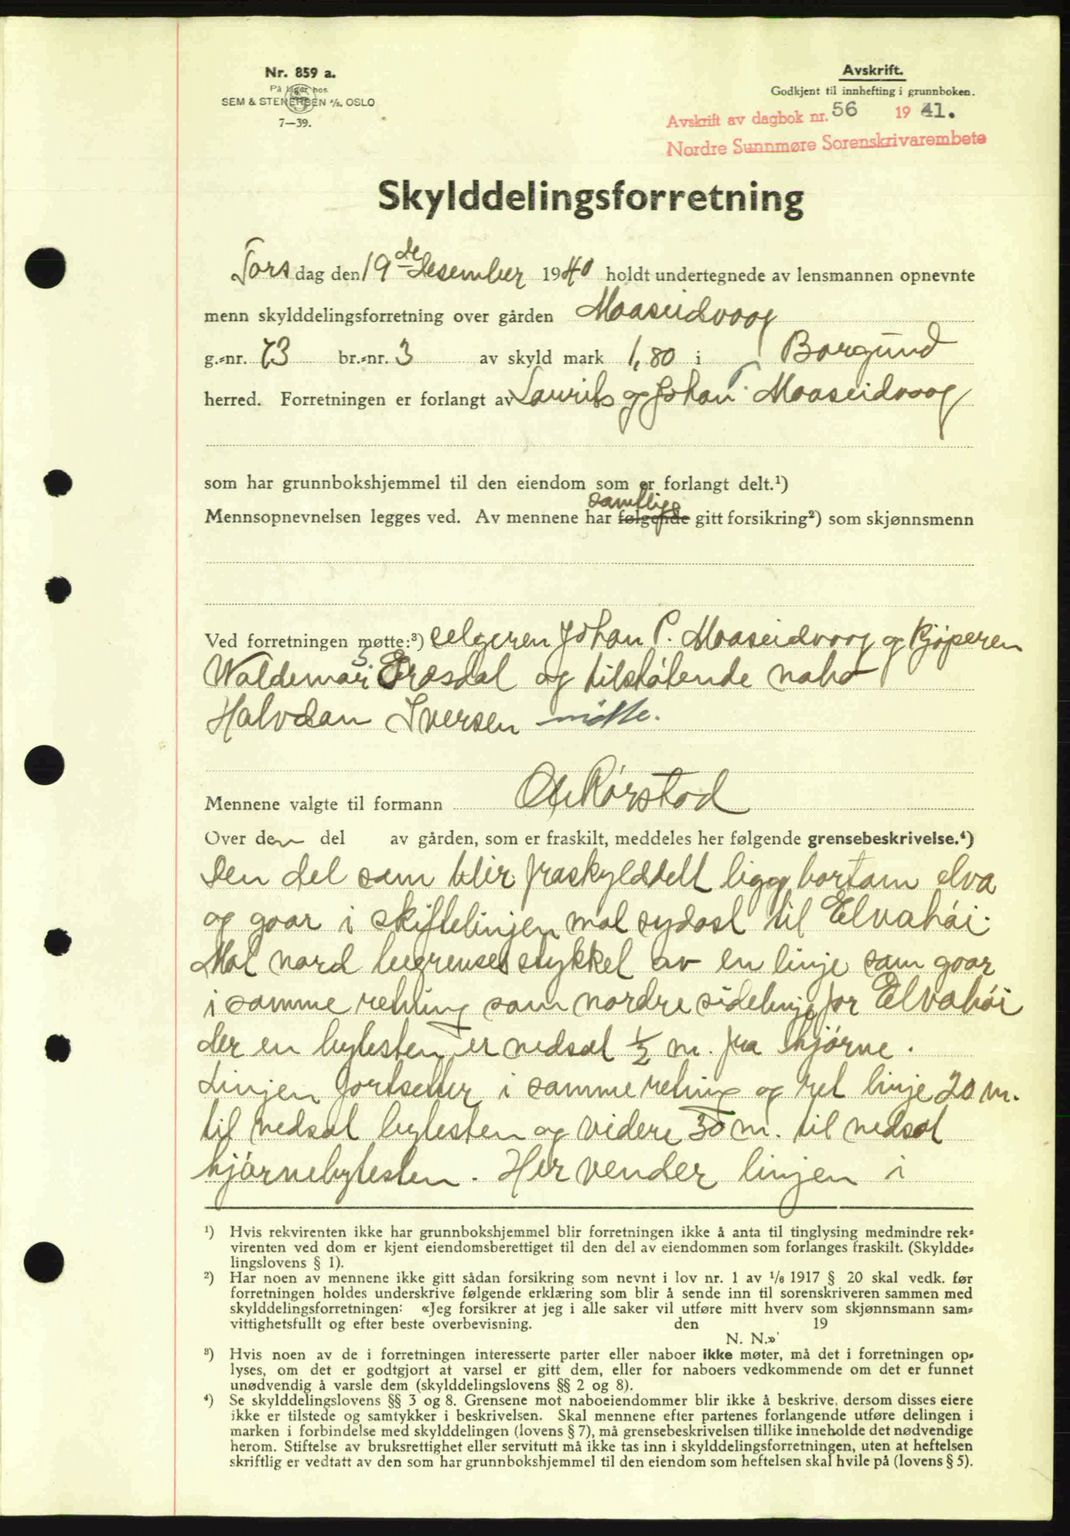 Nr. 859 a.
På lager hos
SEM & STENERSEN A/S. OSLO
7—39.
Avskrift.
Godkjent til innhefting i grunnboken.
Avskrift av dagbok nr. 56 1941.
Nordre Sunnmøre Sorenskrivarembete
Skylddelingsforretning
Torsdag den 19de desember 1940 holdt undertegnede av lensmannen opnevnte
menn skylddelingsforretning over gården Maaseidvaag
g.-nr. 73 br.-nr. 3 av skyld mark 1,80 i Borgund
herred. Forretningen er forlangt av Laurits og Johan P. Maaseidvaag
som har grunnbokshjemmel til den eiendom som er forlangt delt.¹)
samtlige
Mennsopnevnelsen legges ved. Av mennene har følgende gitt forsikring²) som skjønnsmenn
Ved forretningen møtte:³) selgeren Johan P. Maaseidvaag og kjøperen
Waldemar S. Grasdal og tilstøtende nabo
Halvdan Iversen møtte.
Mennene valgte til formann Ole Rørstad
Over den del av gården, som er fraskilt, meddeles her følgende grensebeskrivelse.⁴)
Den del som blir fraskylddelt ligg bortom elva
og gaar i skiftelinjen mot sydost til Elvahøi.
Mot nord begrenses stykket av en linje som gaar
i samme retning som nordre sidelinje for Elvahøi
der en bytesten er nedsat ½ m. fra hjørne.
Linjen fortsetter i samme retning og ret linje 20 m.
til nedsat bytesten og videre 30 m. til nedsat
hjørnebytesten. Her vender linjen i
¹) Hvis rekvirenten ikke har grunnbokshjemmel blir forretningen ikke å anta til tinglysing medmindre rek-
virenten ved dom er kjent eiendomsberettiget til den del av eiendommen som forlanges fraskilt. (Skyldde-
lingslovens § 1).
²) Har noen av mennene ikke gitt sådan forsikring som nevnt i lov nr. 1 av 1/6 1917 § 20 skal vedk. før
forretningen holdes underskrive følgende erklæring som blir å sende inn til sorenskriveren sammen med
skylddelingsforretningen: «Jeg forsikrer at jeg i alle saker vil utføre mitt hverv som skjønnsmann sam-
vittighetsfullt og efter beste overbevisning. den 19
N. N.»
³) Hvis noen av de i forretningen interesserte parter eller naboer ikke møter, må det i forretningen op-
lyses, om det er godtgjort at varsel er gitt dem, eller for naboers vedkommende om det er funnet
unødvendig å varsle dem (skylddelingslovens §§ 2 og 8).
⁴) Se skylddelingslovens §§ 3 og 8. Grensene mot naboeiendommer blir ikke å beskrive, dersom disses eiere
ikke er tilstede og samtykker i beskrivelsen. Skal mennene efter partenes forlangende utføre delingen i
marken i forbindelse med skylddelingen (lovens § 7), må grensebeskrivelsen tillike inneholde det nødvendige
herom. Stiftelse av bruksrettighet eller servitutt må ikke tas inn i skylddelingsforretningen, uten at heftelsen
skriftlig er vedtatt av den som har grunnbokshjemmel til den eiendom som heftelsen skal hvile på (lovens § 5).